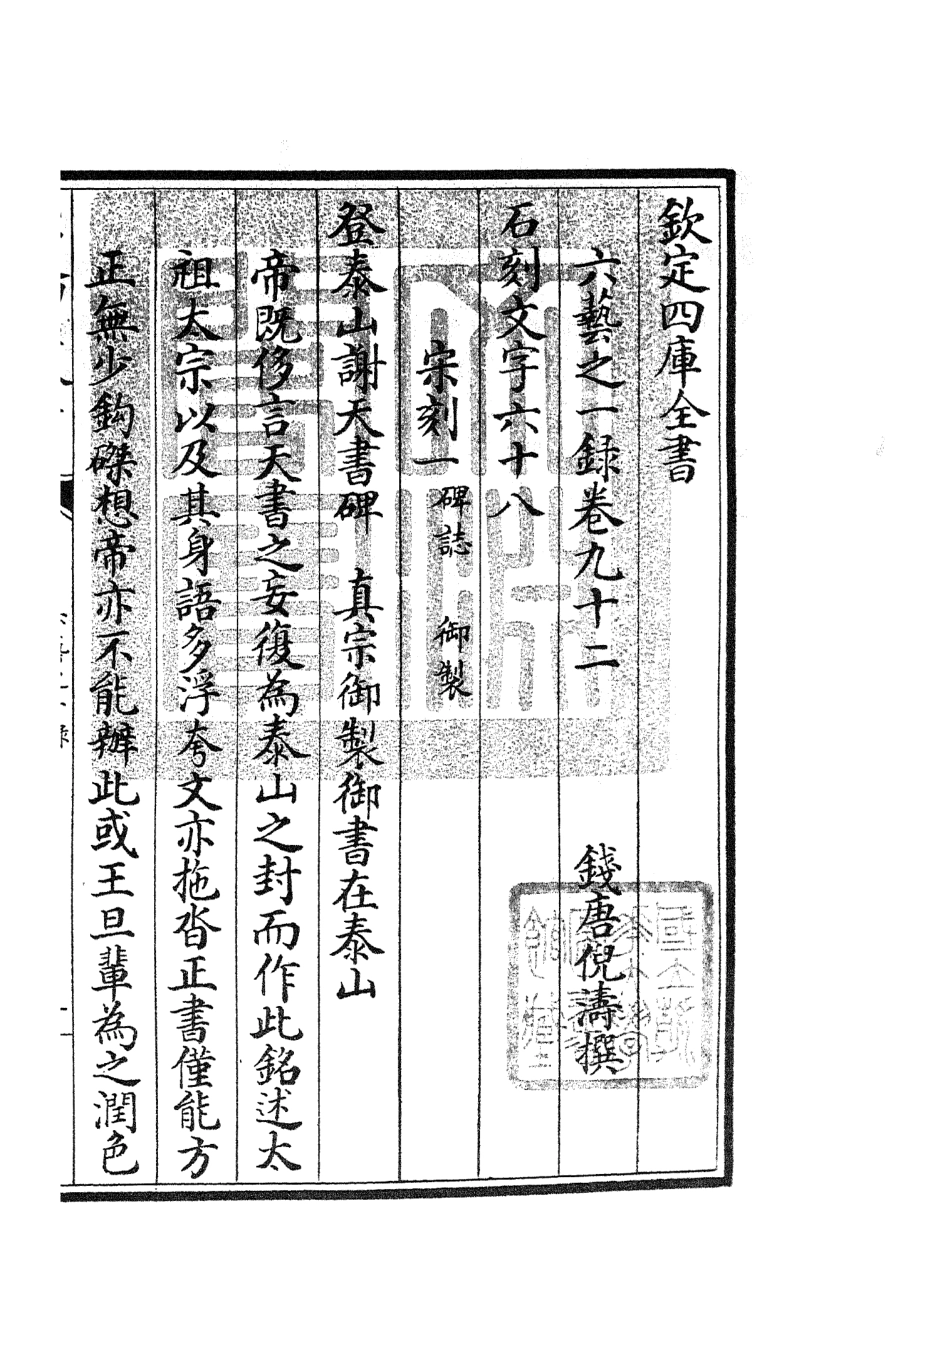 欽定四庫全書
六藝之一録卷九十二　錢唐倪濤撰
石刻文字六十八
宋刻一 碑誌　御製
登泰山謝天書碑　真宗御製御書在泰山
帝既侈言天書之妄復為泰山之封而作此銘述太
祖太宗以及其身語多浮夸文亦拖沓正書僅能方
正無少鈎磔想帝亦不能辦此或王旦輩為之潤色